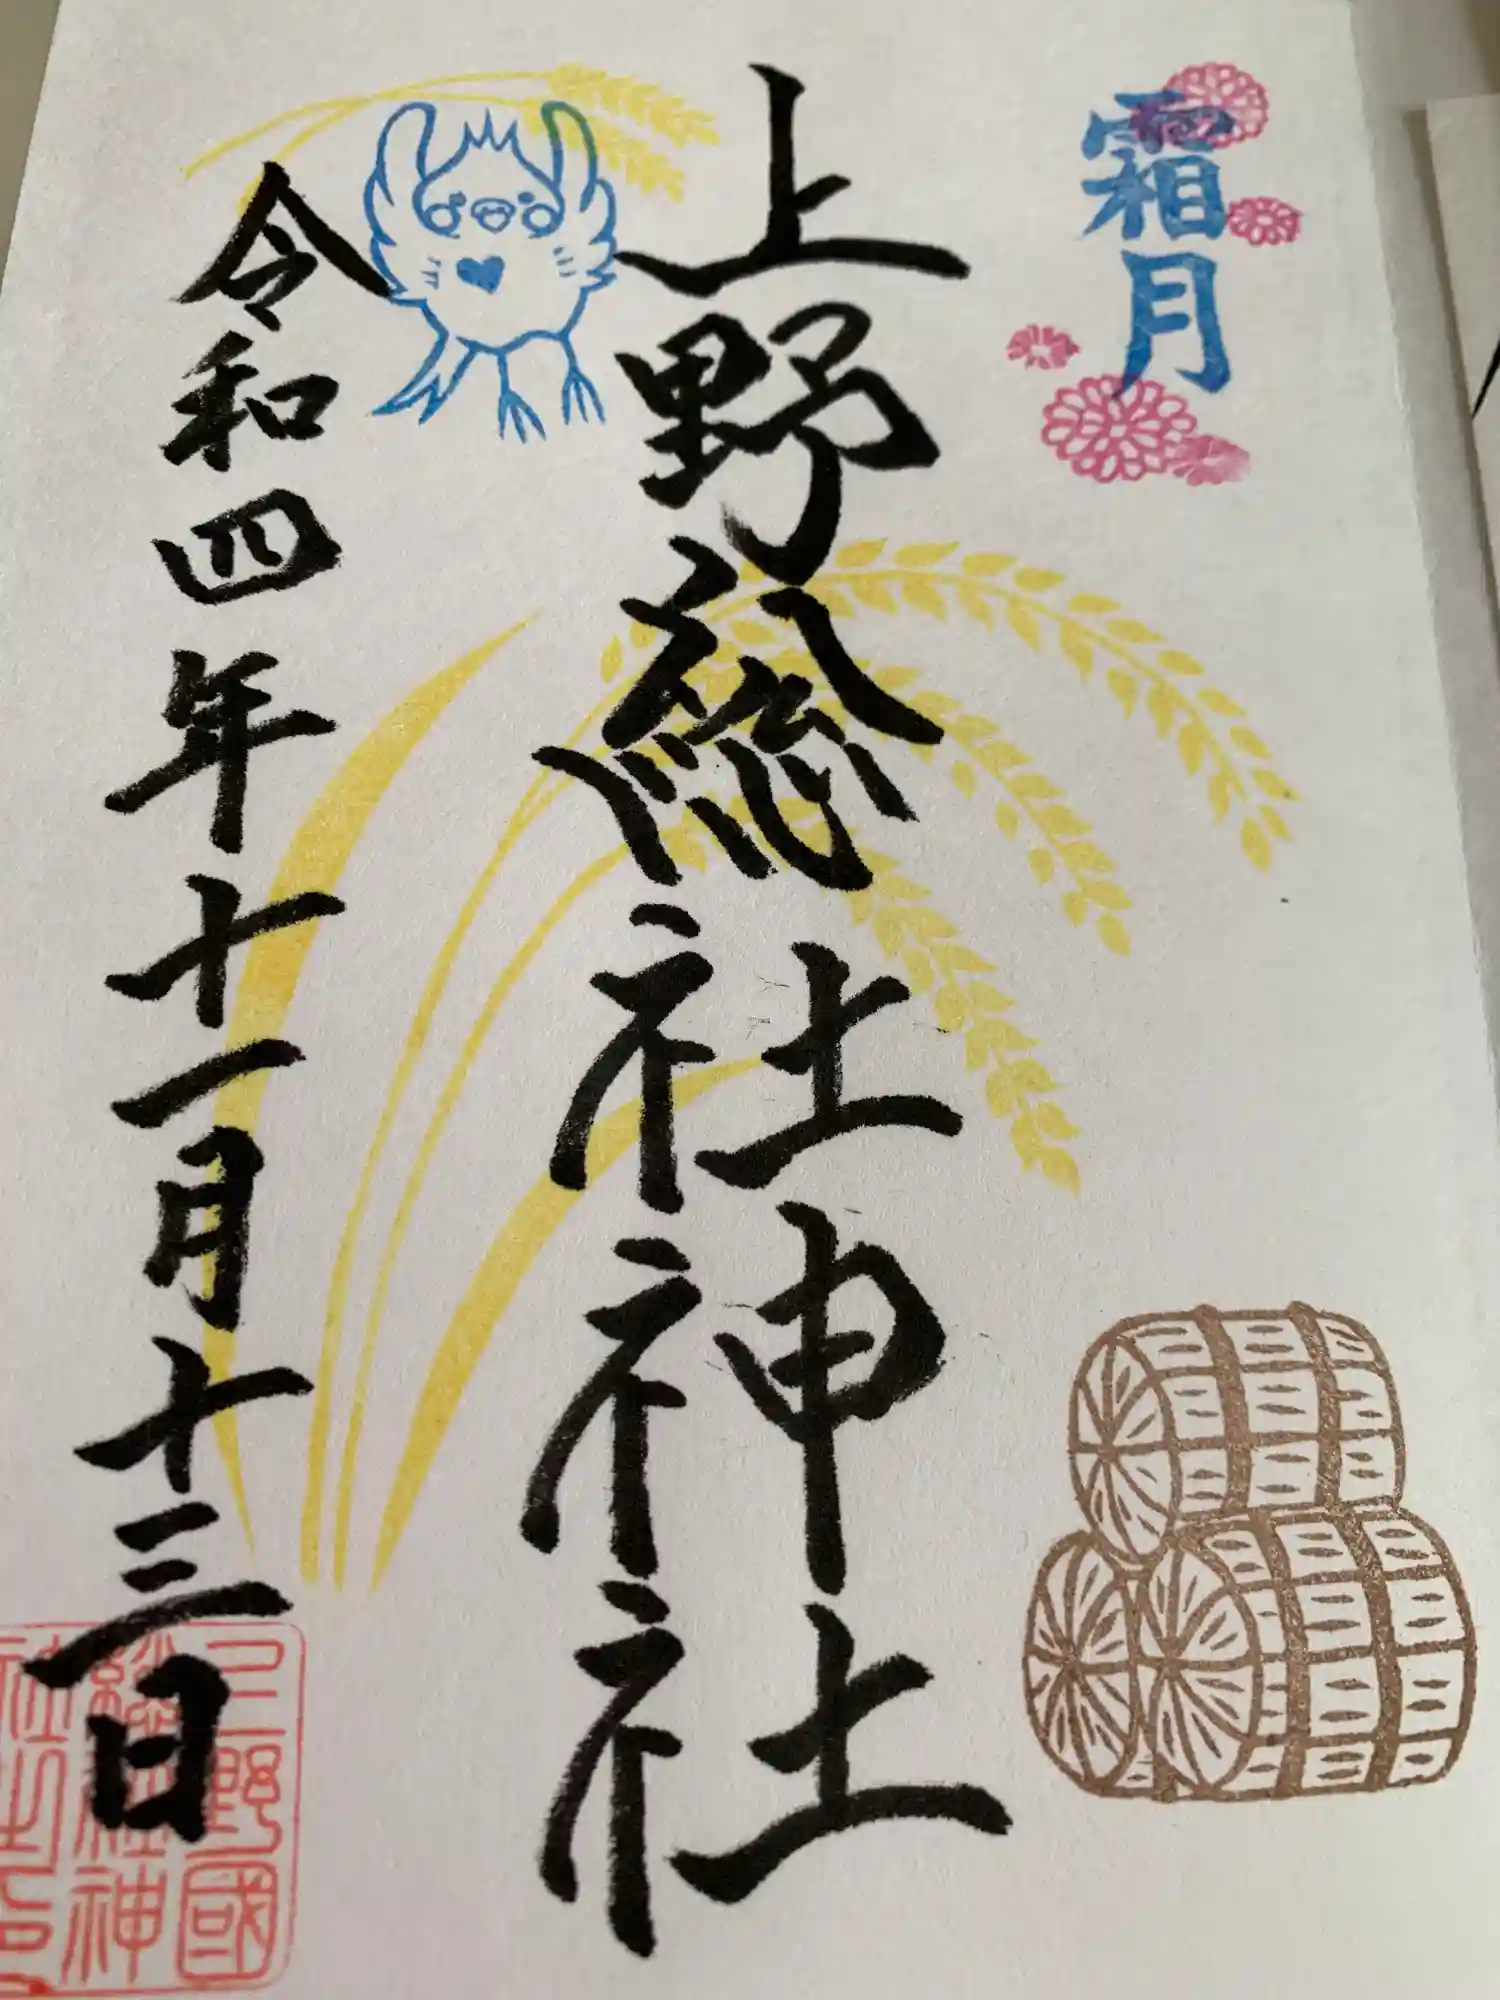 霜月
上野総社神社
令和四年十一月十三日
上野國
総社神
社之印